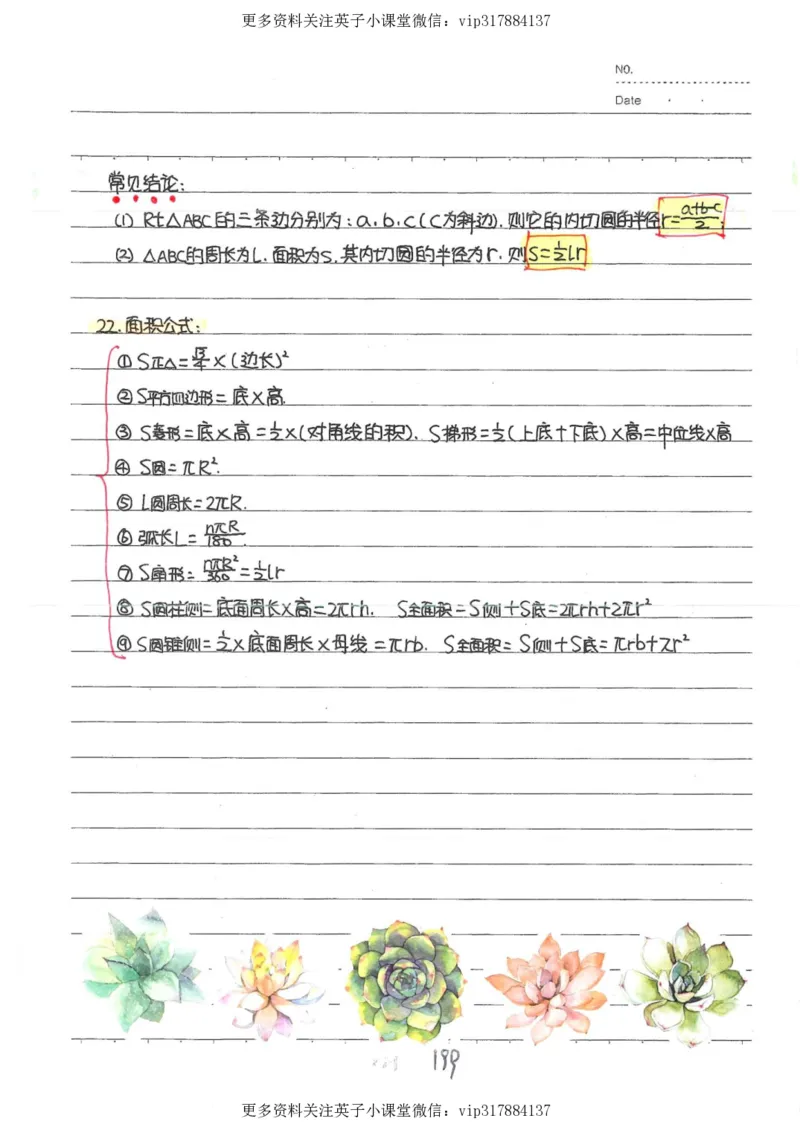 更多资料关注英子小课堂微信：vip317884137
NO.
Date
常见结论：
(1) Rt△ABC的三条边分别为：a、b、c(c为斜边)，则它的内切圆的半径r=(a+b-c)/2；
(2) △ABC的周长为L，面积为S，其内切圆的半径为r，则S=½Lr
22.面积公式：
① S正△=√3/4×(边长)²
② S平行四边形=底×高.
③ S菱形=底×高=½×(对角线的积)，S梯形=½(上底+下底)×高=中位线×高
④ S圆=πR².
⑤ L圆周长=2πR.
⑥ 弧长L=nπR/180.
⑦ S扇形=nπR²/360=½lr
⑧ S圆柱侧=底面周长×高=2πrh. S全面积=S侧+S底=2πrh+2πr²
⑨ S圆锥侧=½×底面周长×母线=πrb. S全面积=S侧+S底=πrb+πr²
199
更多资料关注英子小课堂微信：vip317884137